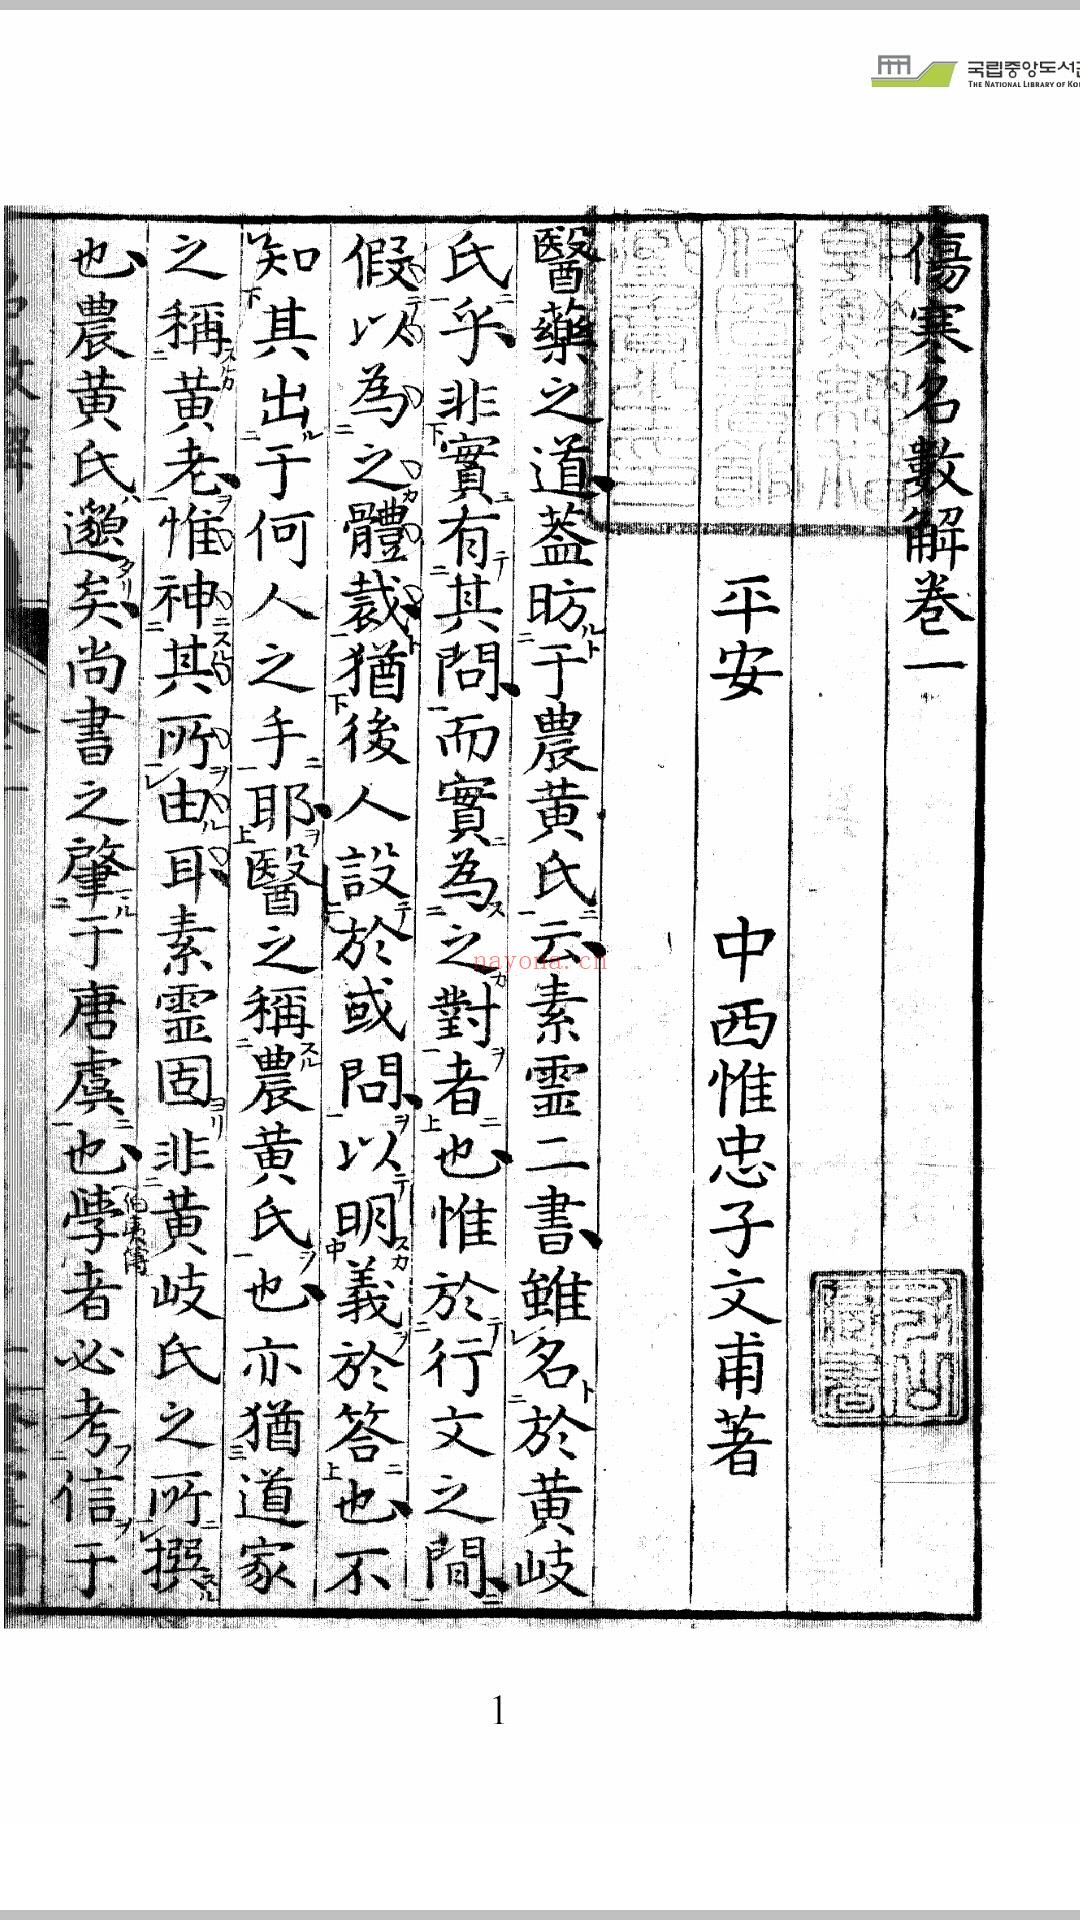 국립중앙도서관
THE NATIONAL LIBRARY OF KO
傷寒名數解卷一
平安 中西惟忠子文甫著
醫藥之道蓋昉于農黃氏云素靈二書雖名於黃岐
氏乎非實有其問而實為之對者也惟於行文之間
假以為之體裁猶後人設於或問以明義於答也不
知其出于何人之手耶醫之稱農黃氏也亦猶道家
之稱黃老惟神其所由耳素靈固非黃岐氏之所撰
也農黃氏邈矣尚書之肇于唐虞也學者必考信于
伯夷傳
nayona.cn
1